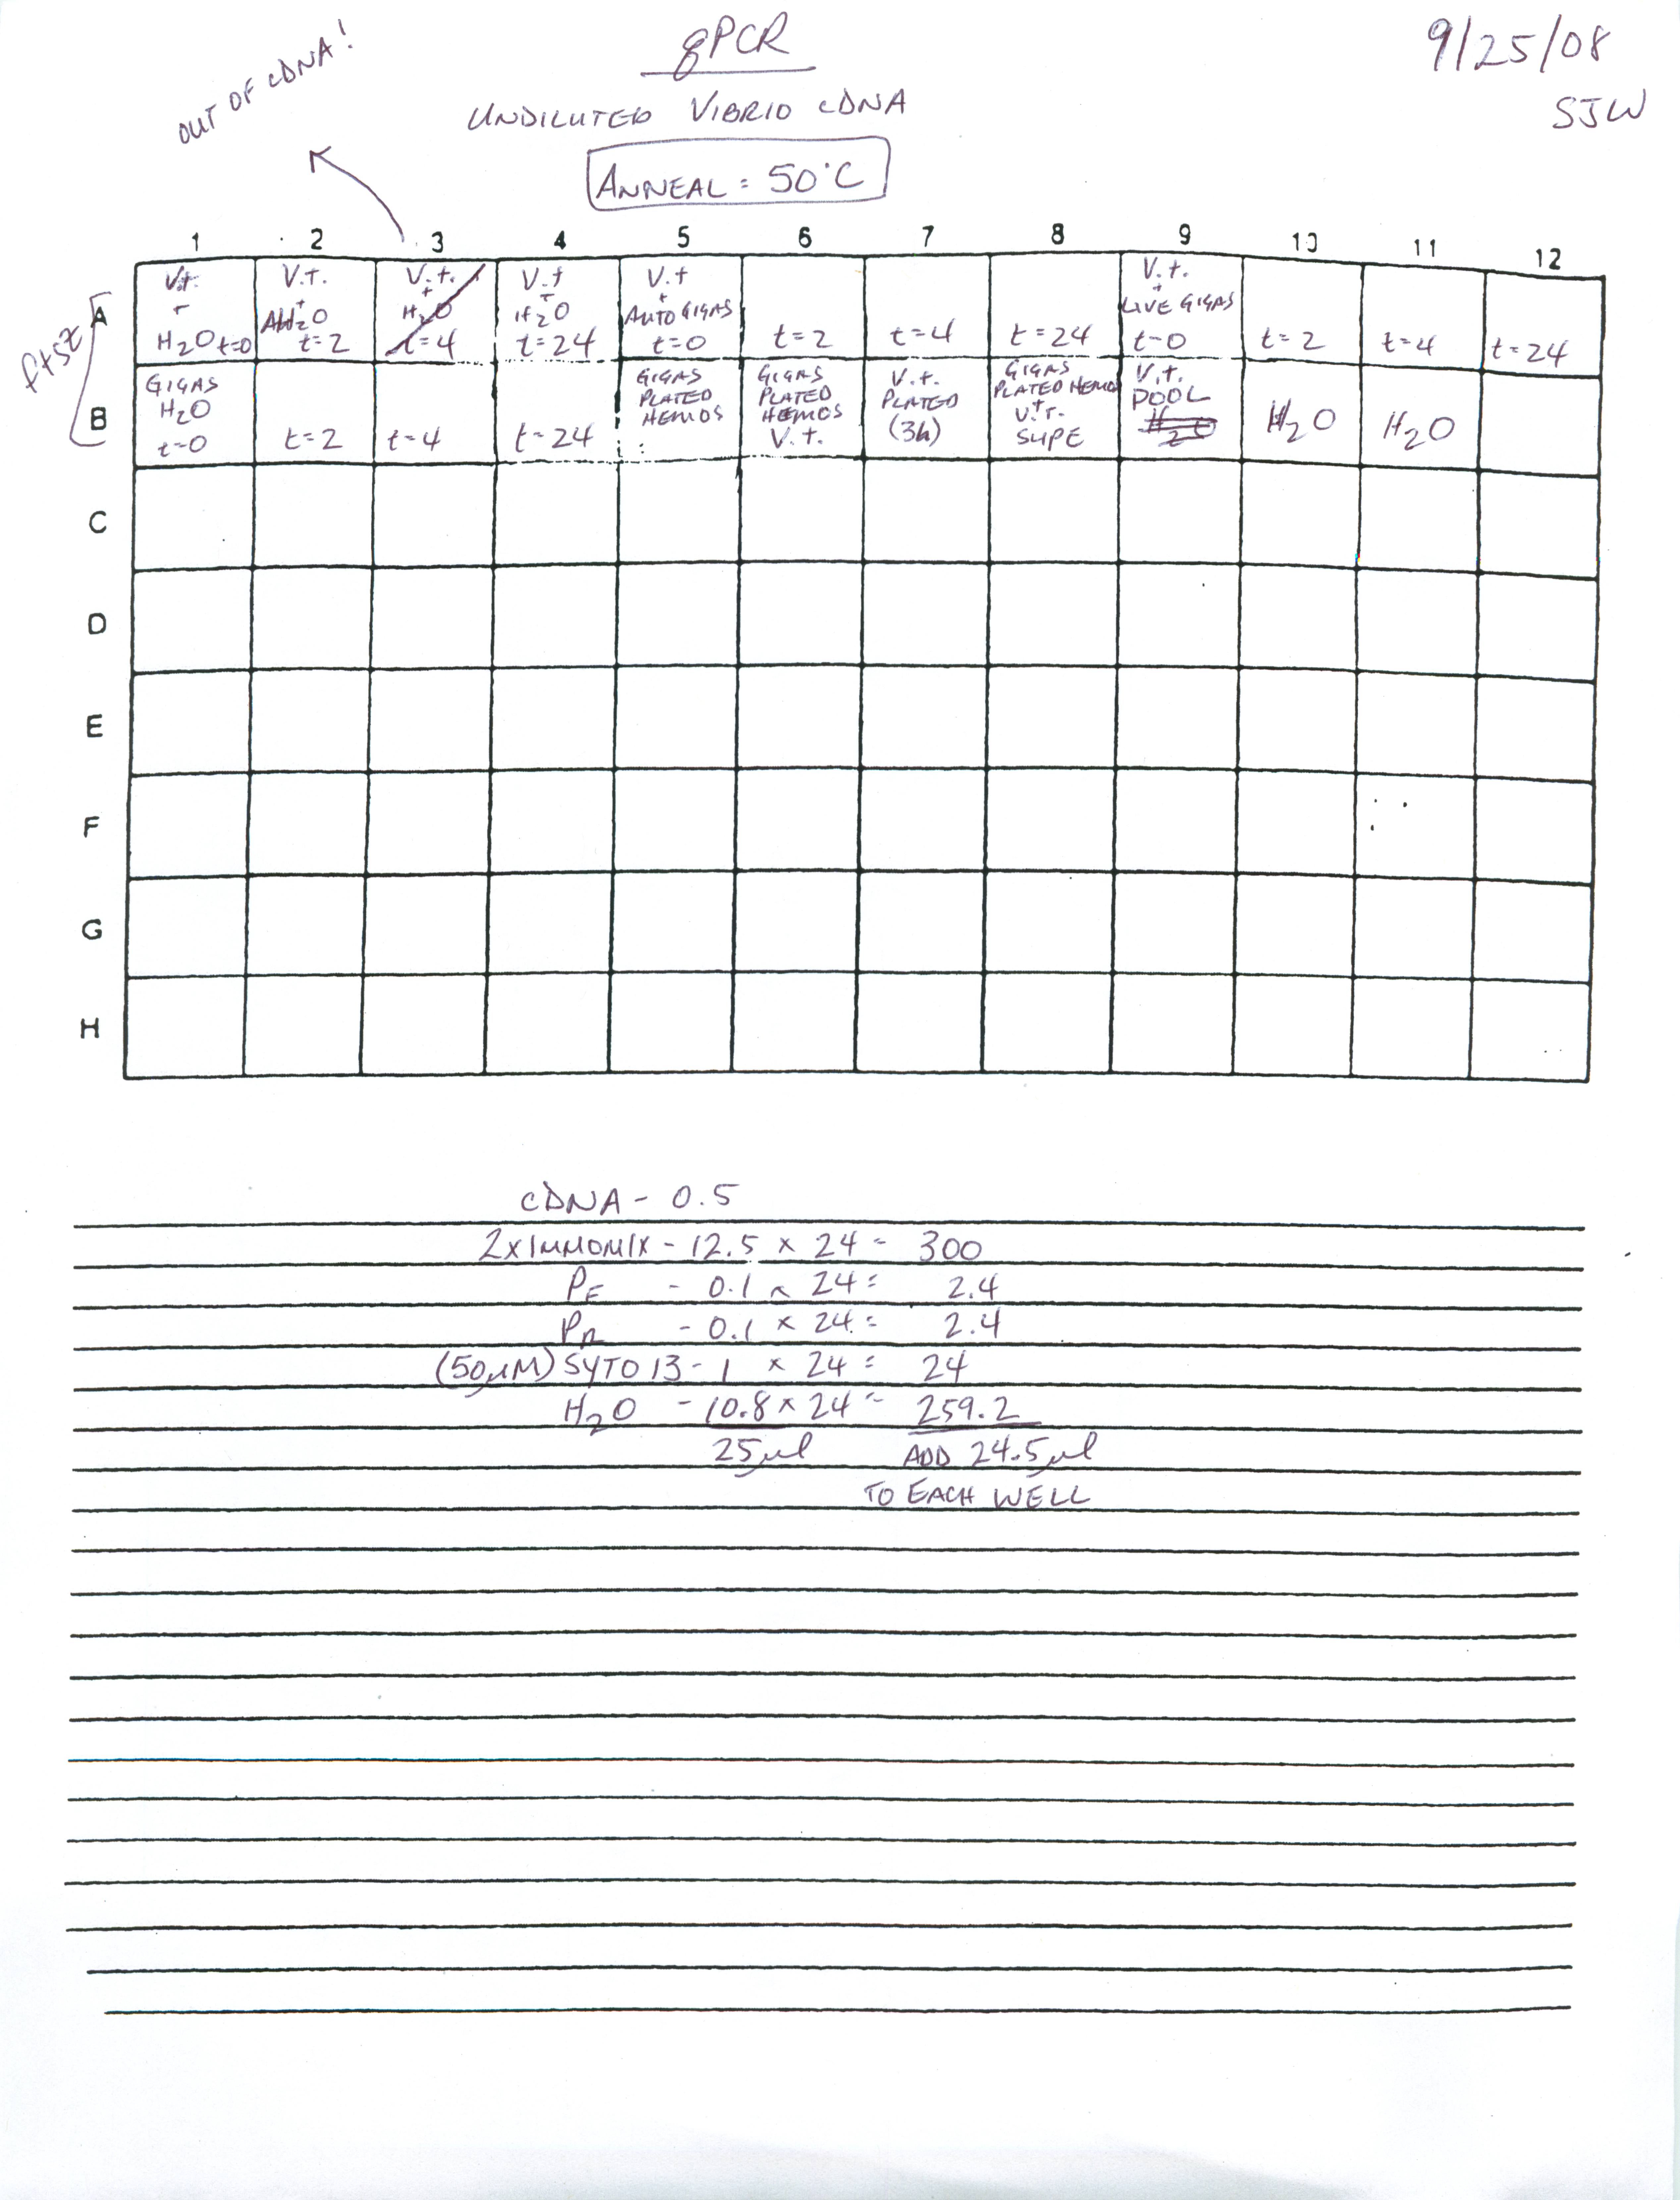 OUT OF cDNA!
qPCR
9/25/08
SJW
UNDILUTED VIBRIO cDNA
ANNEAL = 50°C
1 2 3 4 5 6 7 8 9 10 11 12
ftsz
A
V.t. + H2O t=0
V.t. + H2O t=2
V.t. + H2O t=4
V.t + H2O t=24
V.t + AUTO GIGAS t=0
t=2
t=4
t=24
V.t. + LIVE GIGAS t=0
t=2
t=4
t=24
B
GIGAS H2O t=0
t=2
t=4
t=24
GIGAS PLATED HEMOS
GIGAS PLATED HEMOS V.t.
V.t. PLATED (3h)
GIGAS PLATED HEMO V.t. SUPE
V.t. POOL
H2O
H2O
C
D
E
F
G
H
cDNA - 0.5
2x IMMOMIX - 12.5 x 24 = 300
PF - 0.1 x 24 = 2.4
PR - 0.1 x 24 = 2.4
(50µM) SYTO 13 - 1 x 24 = 24
H2O - 10.8 x 24 = 259.2
25µl ADD 24.5µl
TO EACH WELL